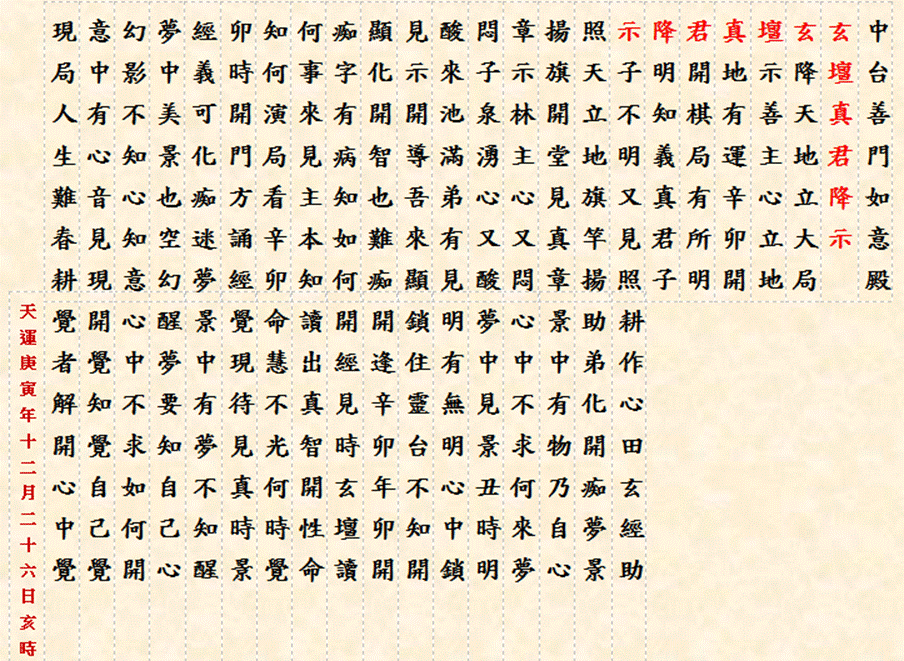 中台善門如意殿
玄壇真君降示
玄降天地立大局
壇示善主心立地
真地有運辛卯開
君開棋局有所明
降明知義真君子
示子不明又見照
照天立地旗竿揚
揚旗開堂見真章
章示林主心又悶
悶子泉湧心又酸
酸來池滿弟有見
見示開導吾來顯
顯化開智也難痴
痴字有病知如何
何事來見主本知
知何演局看辛卯
卯時開門方誦經
經義可化痴迷夢
夢中美景也空幻
幻影不知心知意
意中有心音見現
現局人生難春耕
耕作心田玄經助
助弟化開痴夢景
景中有物乃自心
心中不求何來夢
夢中見景丑時明
明有無明心中鎖
鎖住靈台不知開
開逢辛卯年卯開
開經見時玄壇讀
讀出真智開性命
命慧不光何時覺
覺現待見真時景
景中有夢不知醒
醒夢要知自己心
心中不求如何開
開覺知覺自己覺
覺者解開心中覺
天運庚寅年十二月二十六日亥時